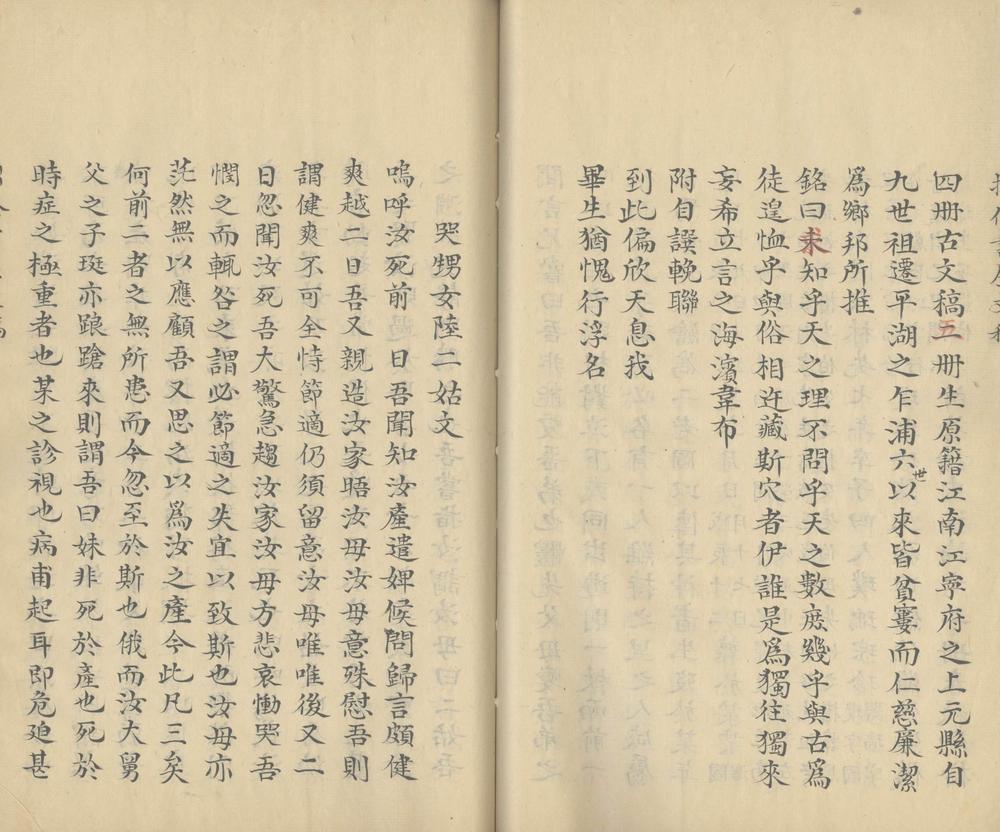 四册古文稿五册生原籍江南江寧府之上元縣自
九世祖遷平湖之乍浦六世以來皆貧窶而仁慈廉潔
爲鄉邦所推
銘曰未知乎天之理不問乎天之數庶幾乎與古爲
徒遑恤乎與俗相迕藏斯穴者伊誰是爲獨往獨來
妄希立言之海濱韋布
附自譔輓聯
到此偏欣天息我
畢生猶愧行浮名
之
哭甥女陸二姑文
嗚呼汝死前一日吾聞知汝產遣婢候問歸言頗健
爽越二日吾又親造汝家晤汝母汝母意殊慰吾則
謂健爽不可全恃節適仍須留意汝母唯唯後又二
日忽聞汝死吾大驚急趨汝家汝母方悲哀慟哭吾
憫之而輒咎之謂必節適之失宜以致斯也汝母亦
茫然無以應顧吾又思之以爲汝之產今此凡三矣
何前二者之無所患而今忽至於斯也俄而汝大舅
父之子珽亦踉蹌來則謂吾曰妹非死於產也死於
時症之極重者也某之診視也病甫起耳即危廹甚